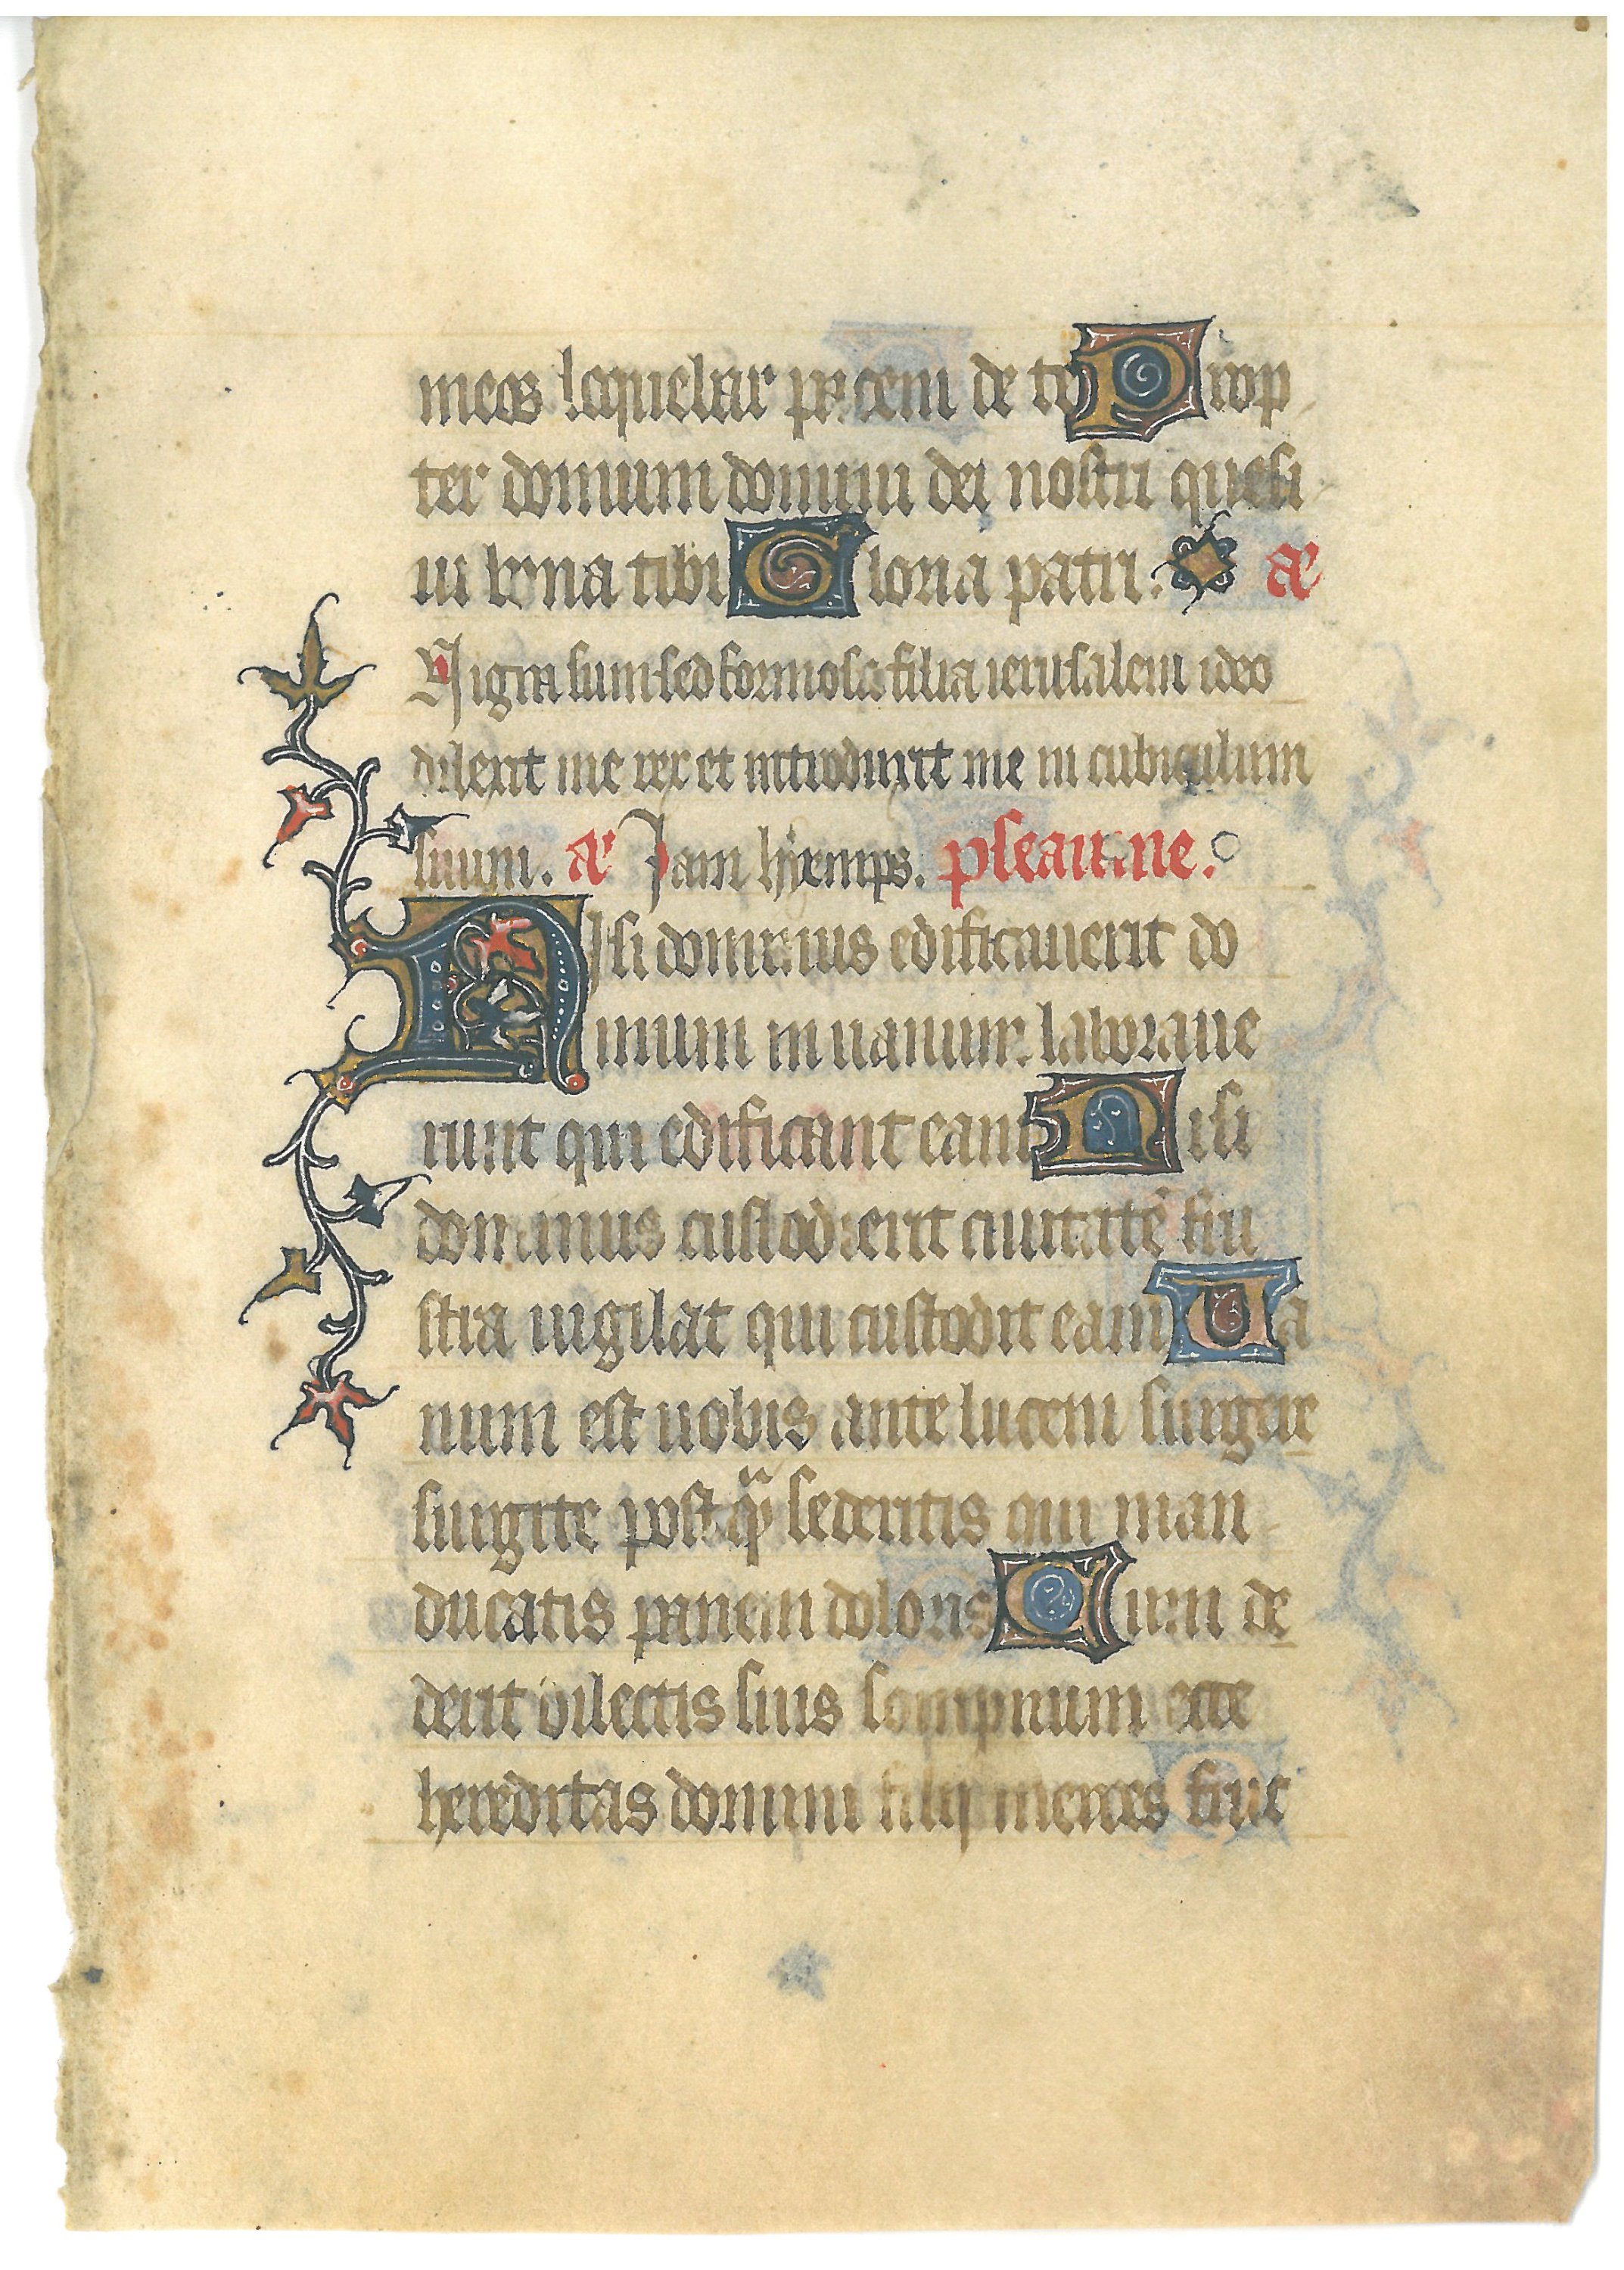 meos loquebar pacem de te Prop
ter domum domini dei nostri quesi
ui bona tibi Gloria patri. añ
Nigra sum sed formosa filia ierusalem ideo
dilexit me rex et introduxit me in cubiculum
suum. añ Jam hyemps. pseaume.
Nisi dominus edificauerit do
mum in uanum laboraue
runt qui edificant eam Nisi
dominus custodierit ciuitatē fru
stra uigilat qui custodit eam Ua
num est uobis ante lucem surgere
surgite postq̃ sederitis qui man
ducatis panem doloris Cum de
derit dilectis suis sompnum ecce
hereditas domini filij merces fruc